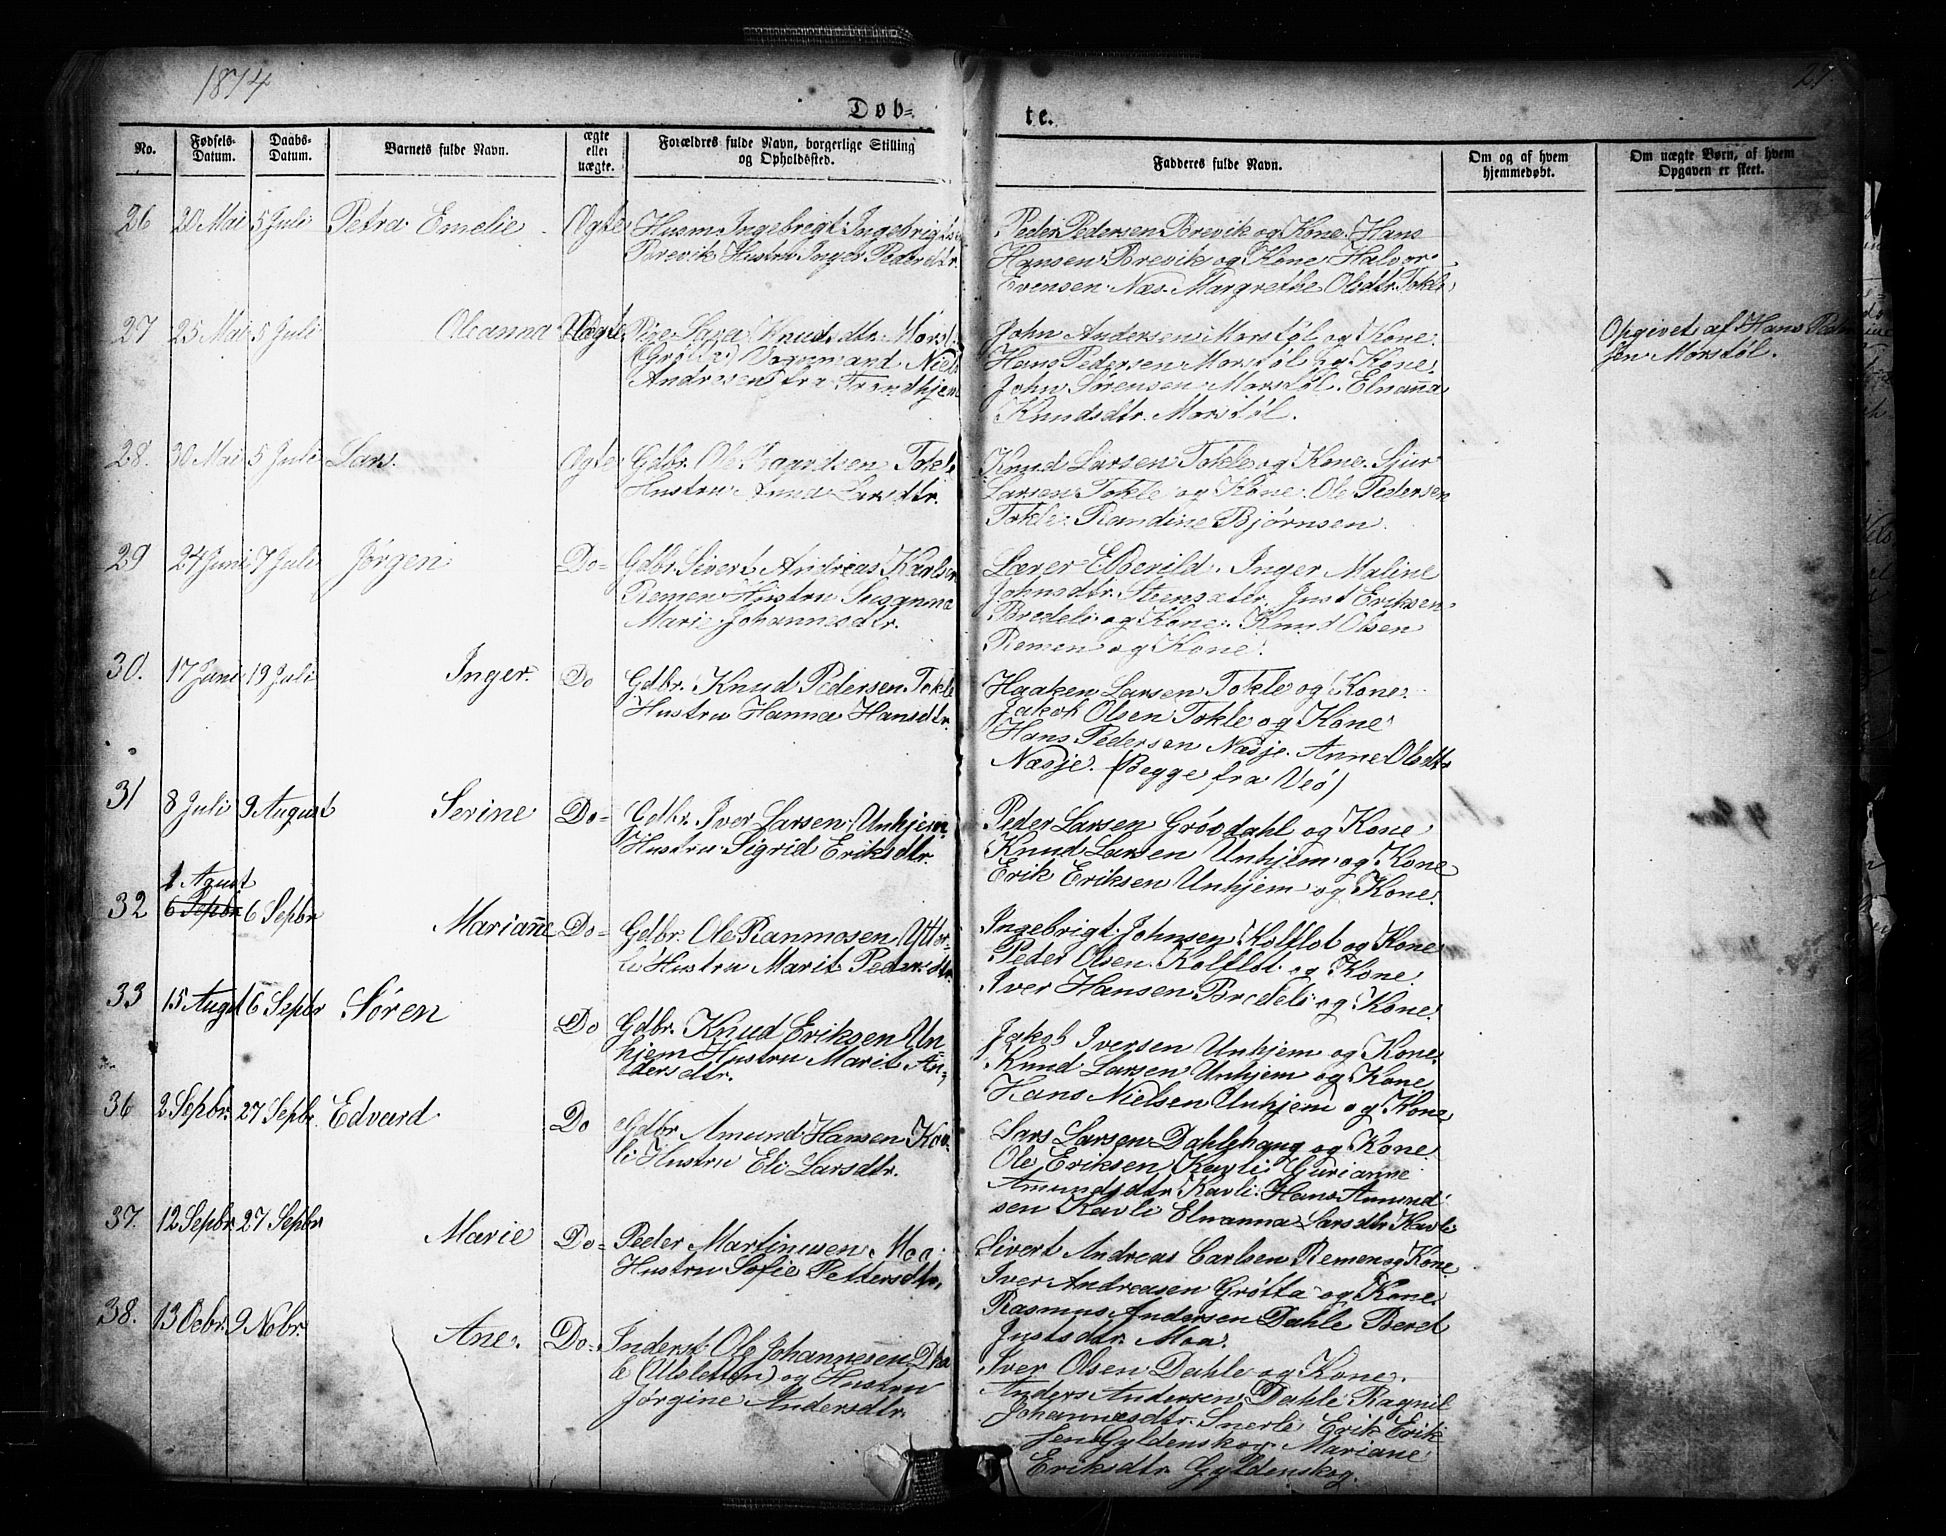 1874
21
Døb-
te.
No.
Fødsels-
Datum.
Daabs-
Datum.
Barnets fulde Navn.
ægte
eller
uægte.
Forældres fulde Navn, borgerlige Stilling
og Opholdssted.
Fadderes fulde Navn.
Om og af hvem
hjemmedøbt.
Om uægte Børn, af hvem
Opgaven er skeet.
26 20 Mai 5 Juli Petra Emelie Ægte Husm Ingebregt Ingebrigts
Brevik Hustru Inger Pedersdtr.
Peder Pedersen Brevik og Kone. Hans
Hansen Brevik og Kone Halvor
Evensen Næs. Margrethe Olsdtr Tokle
27 25 Mai 5 Juli Oleanna Uægte Pige Knudsdtr. Morst
Nils
Andresen fra Trondhjem
John Andersen Morstøl og Kone
Hans Pedersen Morstøl og Kone
John Sørensen Morstøl. Elnaña
Knudsdtr. Morstøl.
Opgivet af Hans Peder
sen Morstøl.
28. 30 Mai 5 Juli Lars. Ægte Gdbr. Ole Tokle
Hustru Larsdtr.
Knud Larsen Tokle og Kone. Sjur
Larsen Tokle og Kone. Ole Pedersen
Tokle. Randine Bjørnsen.
29 24 Juni 7 Juli Jørgen Do- Gdbr. Sivert Andreas Karlsen
Remen Hustru Susanna
Marie Johannesdtr.
Lærer Inger Maline
Johnsdtr. Just Eriksen
Bredeli og Kone. Knud Olsen
Remen og Kone.
30. 17 Juni 19 Juli Inger. Do Gdbr. Knud Pedersen Tokle
Hustru Hanna Hansdtr.
Haaken Larsen Tokle og Kone.
Jakob Olsen Tokle og Kone
Hans Pedersen Næsje. Anne Olsdtr
Næsje. (Begge fra Veø)
31 8 Juli 9 August Serine Do- Gdbr. Iver Larsen Unhjem.
Hustru Sigrid Eriksdtr.
Peder Larsen Grøvdahl og Kone
Knud Larsen Unhjem og Kone
Erik Eriksen Unhjem og Kone.
1 Agust
32 6 Sepbr 6 Sepbr Mariañe Do- Gdbr. Ole Rasmosen Utter-
li Hustru Marit Pedersdtr.
Ingebrigt Johnsen Kolflot og Kone
Peder Olsen Kolflot og Kone.
Iver Hansen Bredeli og Kone.
33 15 Augst 6 Sepbr Sören Do Gdbr. Knud Eriksen Un
hjem Hustru Marit An-
dersdtr.
Jakob Iversen Unhjem og Kone.
Knud Larsen Unhjem og Kone
Hans Nielsen Unhjem og Kone
36 2 Sepbr. 27 Sepbr. Edvard Do Gdbr Amund Hansen Kav
li Hustru Eli Larsdtr.
Lars Larsen Dahlshaug og Kone
Ole Eriksen Kavli Gurianne
Amundsdtr. Kavli. Hans Amund
sen Kavli Elnanna Larsdtr Kavli
37. 12 Sepbr. 27 Sepbr Marie Do- Peder Martinusen Moa
Hustru Sofie Pettersdtr.
Sivert Andreas Carlsen Remen og Kone.
Iver Andreasen Grøtta og Kone.
Rasmus Andersen Dahle Beret
Justsdtr. Moa.
38. 13 Ocbr. 9 Nobr. Ane. Do- Inderst Ole Johannesen Dha
le (Ulsletten) og Hustru
Jørgine Andersdtr.
Iver Olsen Dahle og Kone.
Anders Andersen Dahle Ragnil
Johannesdtr. Snerle Erik Erik
sen Gyldenskog. Mariane
Eriksdtr. Gyldenskog.